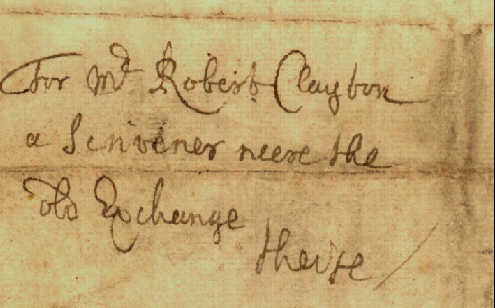 For Mr Robert Clayton
a Scrivener neere the
Old Exchange
these